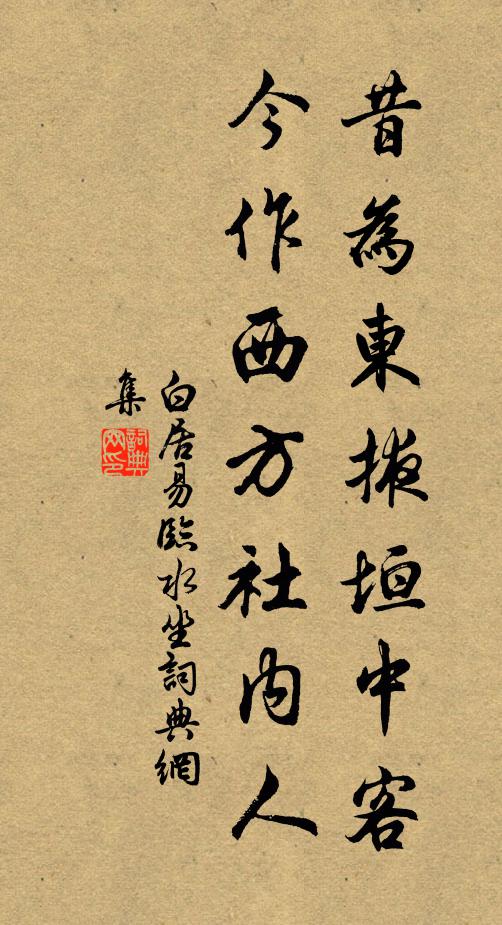 昔為東掖垣中客
今作西方社內人
白居易臨水坐詞典網
集
詞典
網印